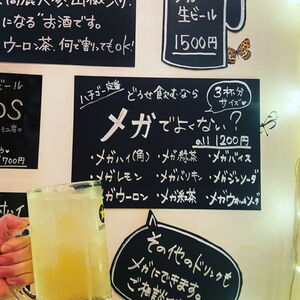 になる"お酒です。
ウーロン茶、何で割ってもok!
生ビール
1500円
ハチゴー定番
どうせ飲むなら
3杯分
サイズ
メガでよくない?
all 1200円
・メガハイ(角)
・メガ緑茶
・メガバイス
・メガレモン
・メガバリキン
・メガジンソーダ
・メガウーロン
・メガ紅茶
その他のドリンクも
メガにできます。
ご相談
700円